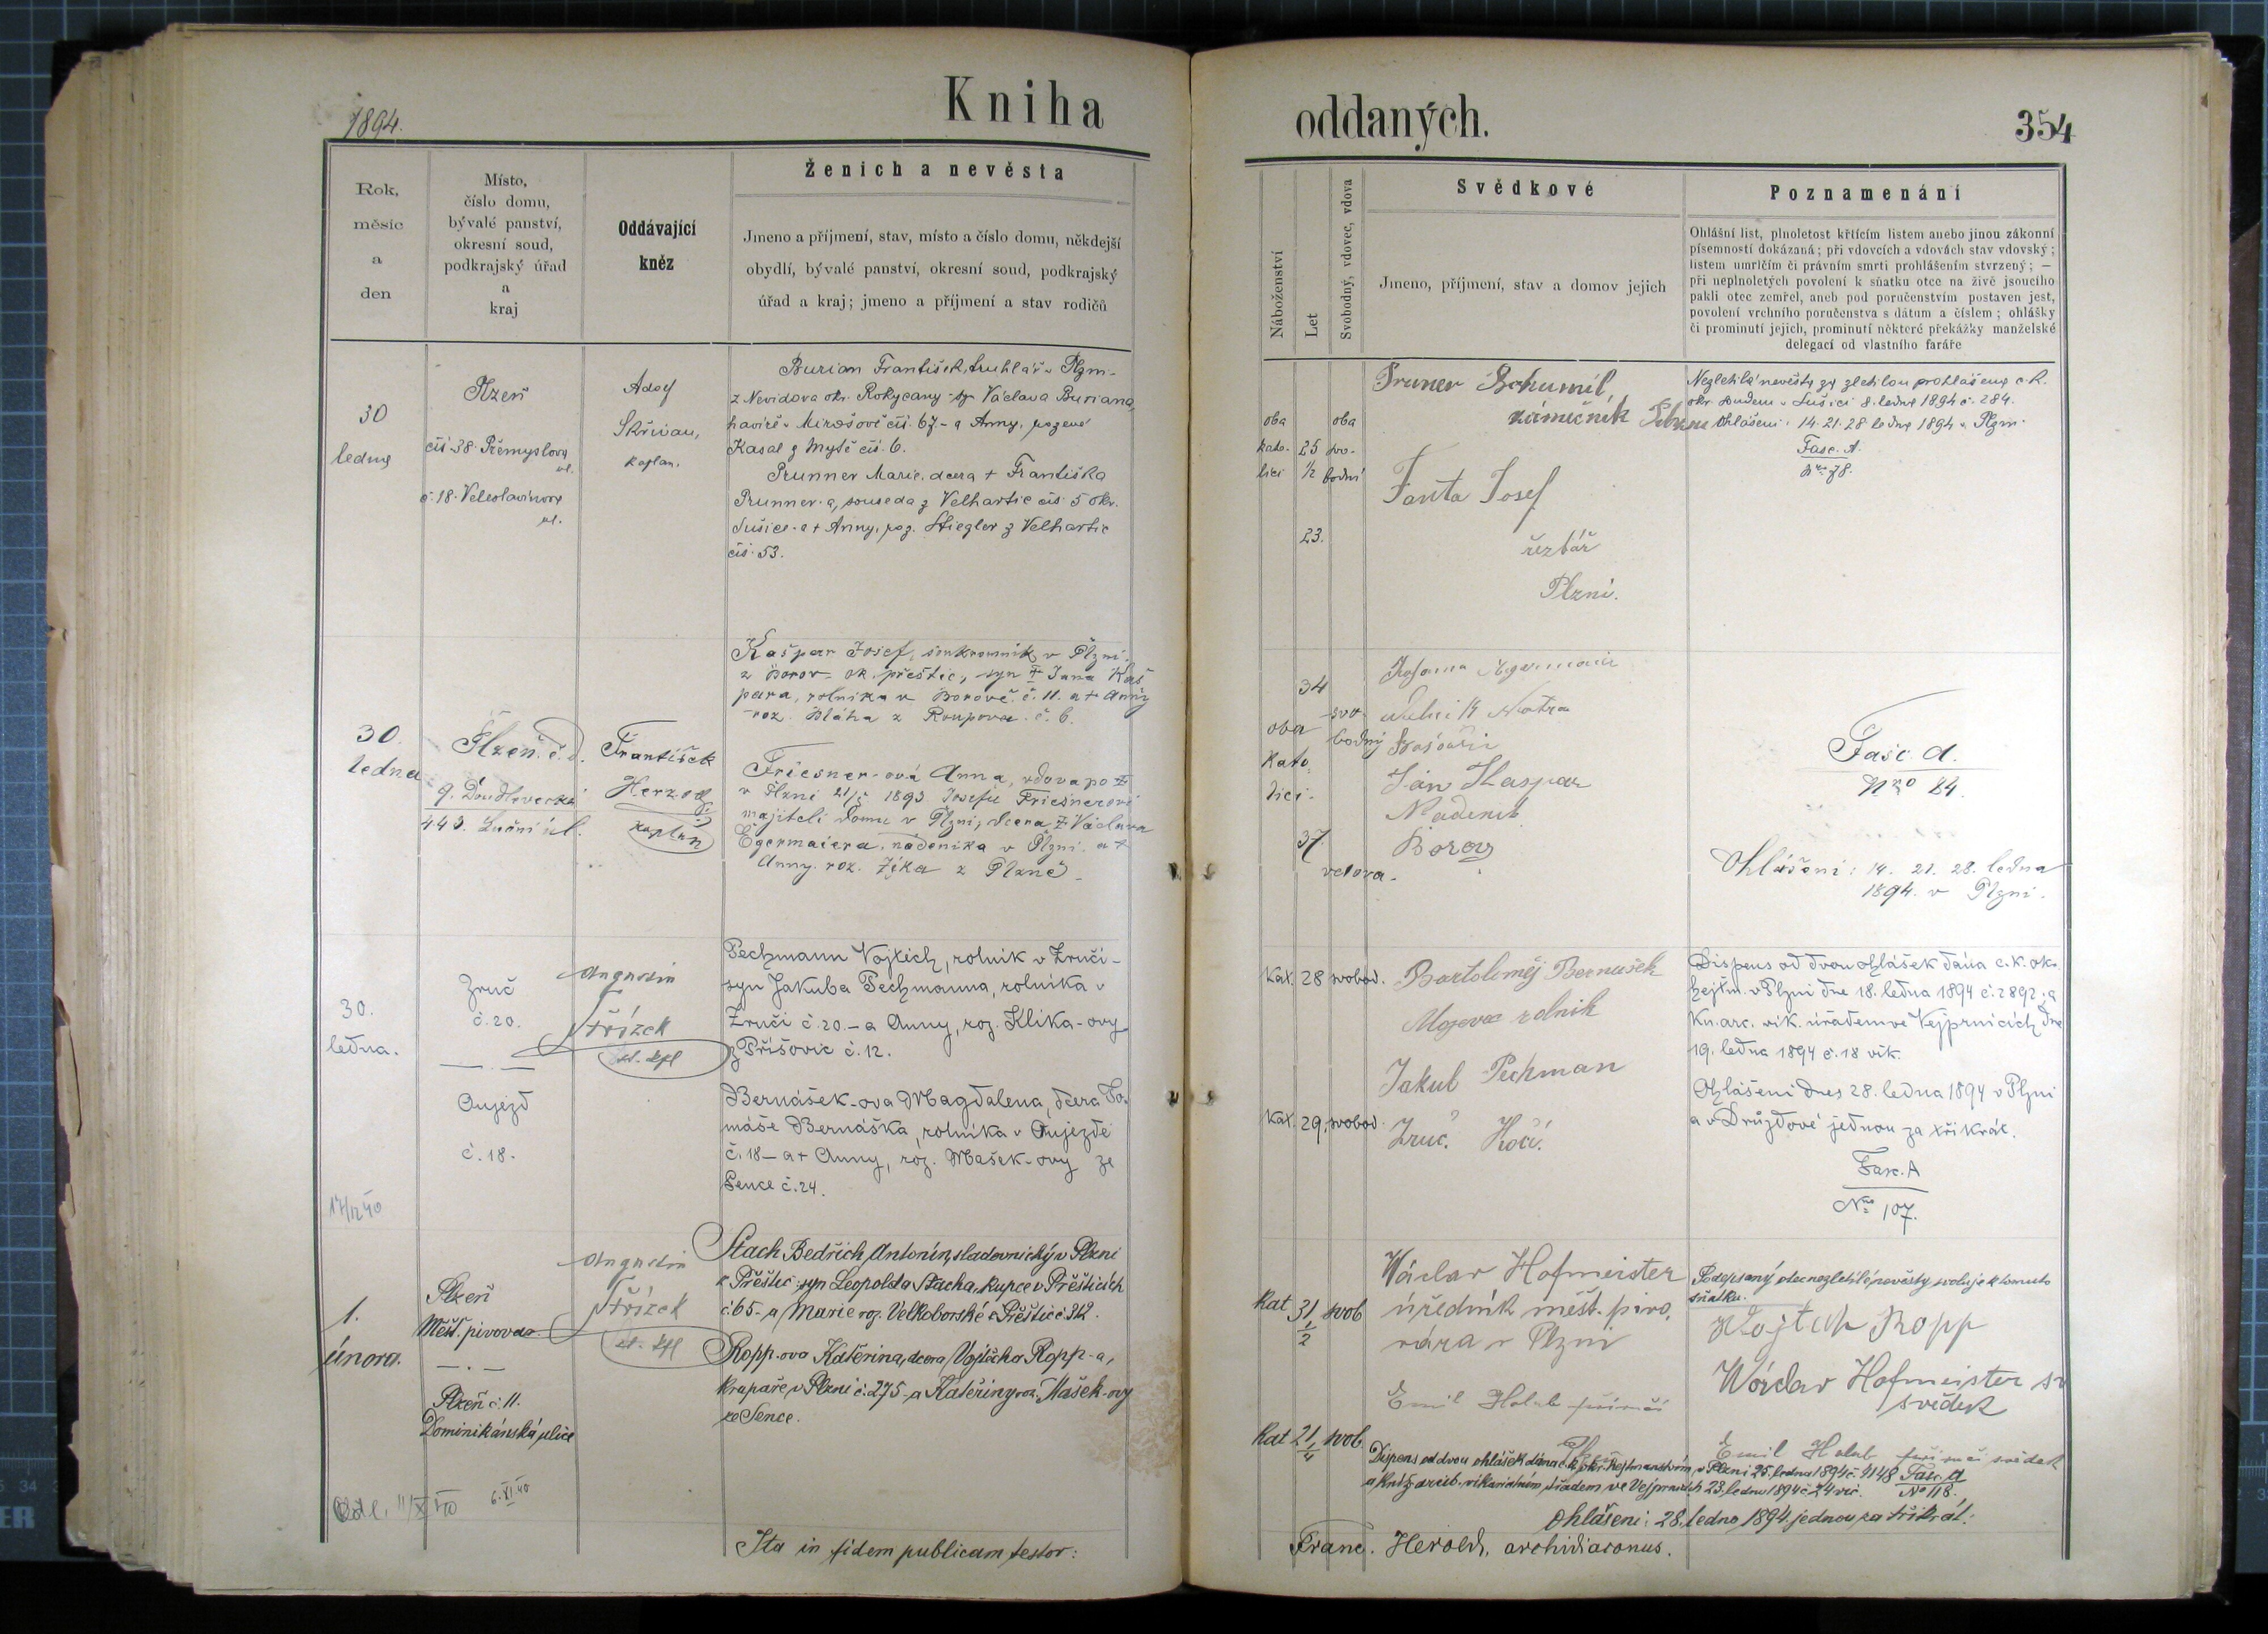 1894.
Kniha
oddaných.
354
Rok,
měsíc
a
den
Místo,
číslo domu,
bývalé panství,
okresní soud,
podkrajský úřad
a
kraj
Oddávající
kněz
Ženich a nevěsta
Jmeno a příjmení, stav, místo a číslo domu, někdejší
obydlí, bývalé panství, okresní soud, podkrajský
úřad a kraj; jmeno a příjmení a stav rodičů
Náboženství
Let
Svobodný, vdovec, vdova
Svědkové
Jmeno, příjmení, stav a domov jejich
Poznamenání
Ohlášní list, plnoletost křtícím listem anebo jinou zákonní
písemností dokázaná; při vdovcích a vdovách stav vdovský;
listem umrlčím či právním smrti prohlášením stvrzený; —
při neplnoletých povolení k sňatku otce na živě jsoucího
pakli otec zemřel, aneb pod poručenstvím postaven jest,
povolení vrchního poručenstva s dátum a číslem; ohlášky
či prominutí jejich, prominutí některé překážky manželské
delegací od vlastního faráře
30
ledna
Plzeň
čís. 38. Přemyslova
ul.
č. 18. Veleslavínova
ul.
Adolf
Skřivan,
kaplan.
Burian František, truhlář v Plzni-
z Nevidova okr. Rokycany - syn Václava Buriana,
havíře v Mirošově čís. 67 - a Anny, rozené
Kasal z Mytě čís. 6.
Prunner Marie, dcera + Františka
Prunner-a, souseda z Velhartic čís. 5 okr.
Sušice - a + Anny, roz. Stiegler z Velhartic
čís. 53.
oba
kato-
lici
25
1/2
23.
oba
svo-
bodní
Pruner Bohumil,
zámečník
Fanta Josef
řezbář
Plzni.
Nezletilá nevěsta za zletilou prohlášena c. k.
okr. soudem v Sušici 8. ledna 1894 č. 284.
Ohlášeni: 14. 21. 28. ledna 1894 v Plzni.
Fasc. A.
Nro 78.
30.
ledna
Plzeň. č. d.
9. Doudlevecká
443. Luční ul.
František
Herzog
kaplan
Kašpar Josef, soukromník v Plzni,
z Borov ok. přeštic, syn + Jana Kaš
para, rolníka v Borově č. 11. a + Anny
roz. Bláha z Roupova č. 6.
Friesner-ová Anna, vdova po +
v Plzni 1893 Josefu Friesnerovi
majiteli domu v Plzni, dcera + Václava
Egermaiera, nádeníka v Plzni a +
Anny roz. Zíka z Plzně.
oba
kato
lici.
34
37
svo-
bodný
vdova.
Jan Kaspar
Nadenik
Borovy
Fasc. A.
Nro 84.
Ohlášeni: 14. 21. 28. ledna
1894. v Plzni.
30.
ledna.
Zruč
č. 20.
Oujezd
č. 18.
Augustin
Střízek
st. kpl
Pechmann Vojtěch, rolník v Zruči -
syn Jakuba Pechmanna, rolníka v
Zruči č. 20. - a Anny, roz. Klika-ovy
z Příšovic č. 12.
Bernášek-ova Magdalena, dcera To-
máše Bernáška, rolníka v Oujezdě
č. 18 - a + Anny, roz. Mašek-ovy ze
Sence č. 24.
Kat. 28 svobod.
Kat. 29. svobod.
Bartoloměj Bernašek
rolnik
Jakub Pechman
Zruč.
Dispens od dvou ohlášek dána c. k. okr.
hejtm. v Plzni dne 18. ledna 1894 č. 2892; a
kn. arc. vik. úřadem ve Vejprnicích dne
19. ledna 1894 č. 18 vik.
Ohlášeni dnes 28. ledna 1894 v Plzni
a v Druzdově jednou za třikrát.
Fasc. A
Nro 107.
17/12 40
1.
února.
Plzeň
Měšť. pivovar.
Plzeň č. 11.
Dominikánská ulice
Augustin
Střízek
st. kpl
Stach Bedřich, Antonín, sladovnický v Plzni
z Přeštic: syn Leopolda Stacha, kupce v Přešticích
č. 65. - a Marie roz. Velkoborské z Přeštic č. 312.
Ropp-ova Kateřina, dcera Vojtěcha Ropp-a,
krupaře v Plzni č. 275 - a Kateřiny roz. Mašek-ovy
ze Sence.
Kat
31
1/2
svob
Kat
21
1/4
svob.
Václav Hofmeister
úředník měšť. pivo,
vára v Plzni
Emil Holub
Podepsaný otec nezletilé nevěsty svoluje k tomuto
sňatku.
Vojtěch Ropp
Václav Hofmeister
svědek
Emil Holub svědek
Dispens od dvou ohlášek dána c. k. okr. hejtmanstvím v Plzni 25. ledna 1894 č. 4148
a kníž. arcib. vikariátním úřadem ve Vejprnicích 23. ledna 1894 č. 24 vic.
Fasc. A
No 118.
Ohlášeni: 28. ledna 1894. jednou za třikrát.
6. XI. 40
Ita in fidem publicam testor:
Franc. Herold, archidiaconus.